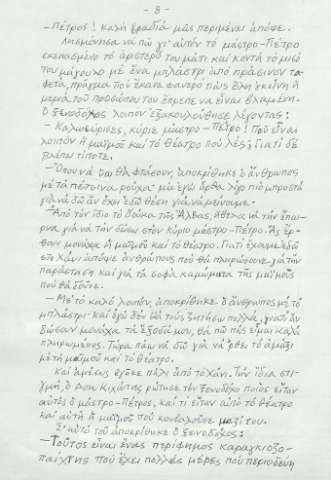 - 8 -
- Πέτρος! καλή βραδιά μᾶς περιμένει ἀπόψε.
Λησμόνησα νὰ πῶ γι' αὐτὸν τὸ μάστρο-Πέτρο
σκεπασμένο τὸ ἀριστερό του μάτι καὶ κοντὰ τὸ μισό
του μάγουλο μὲ ἕνα μπλάστρι ἀπὸ πράσινον τα-
φετά, πρᾶγμα ποὺ ἔκανε φανερὸ πὼς ὅλη ἐκείνη ἡ
μεριὰ τοῦ προσώπου του ἔπρεπε νὰ εἶναι βλαμένη.
Ὁ ξενοδόχος λοιπὸν ἐξακολούθησε λέγοντας:
- Καλωσώρισες, κύριε μάστρο-Πέτρο! Ποῦ εἶναι
λοιπὸν ἡ μαϊμοῦ καὶ τὸ θέατρο ποὺ λές; Γιατὶ δὲ
βλέπω τίποτε.
- Ὅπου νὰ 'ναι θὰ φτάσουν, ἀποκρίθηκε ὁ ἄνθρωπος
μὲ τὰ πέτσινα ροῦχα· μὰ ἐγὼ ἦρθα λίγο πιὸ μπροστὰ
γιὰ νὰ δῶ ἂν ἔχει ἐδῶ θέση γιὰ νὰ μείνουμε.
- Ἀπὸ τὸν ἴδιο τὸ δούκα τῆς Ἄλβας, ἤθελα νὰ τὴν ἔπαι-
ρνα γιὰ νὰ τὴν δώσω στὸν κύριο μάστρο-Πέτρο. Ἂς ἔρ-
θουν μονάχα ἡ μαϊμοῦ καὶ τὸ θέατρο. Γιατὶ ἔχουμε ἐδῶ
στὸ χάνι ἀπόψε ἀνθρώπους ποὺ θὰ πληρώσουνε γιὰ τὴν
παράσταση καὶ γιὰ τὰ σοφὰ καμώματα τῆς μαϊμοῦς
ποὺ θὰ δοῦνε.
- Μὲ τὸ καλὸ λοιπόν, ἀποκρίθηκε ὁ ἄνθρωπος μὲ τὸ
μπλάστρι· καὶ ἐγὼ δὲν θὰ τοὺς ζητήσω πολλά, γιατὶ ἂν
δώσουν μονάχα τὰ ἔξοδά μου, θὰ πῶ πὼς εἶμαι καλὰ
πληρωμένος. Τώρα πάω νὰ δῶ γιὰ νὰ 'ρθει τὸ ἁμάξι
μὲ τὴ μαϊμοῦ καὶ τὸ θέατρο.
Καὶ ἀμέσως βγῆκε πάλι ἀπὸ τὸ χάνι. Τὴν ἴδια στι-
γμὴ ὁ Δὸν Κιχώτης ρώτησε τὸν ξενοδόχο ποιὸς εἶταν
αὐτὸς ὁ μάστρο-Πέτρος, καὶ τί εἶταν αὐτὸ τὸ θέατρο
καὶ αὐτὴ ἡ μαϊμοῦ ποὺ κουβαλοῦσε μαζί του.
Σ' αὐτὸ τοῦ ἀποκρίθηκε ὁ ξενοδόχος:
- Τοῦτος εἶναι ἕνας περίφημος καραγκιοζο-
παίχτης ποὺ ἔχει πολλὲς μέρες ποὺ περιοδεύει